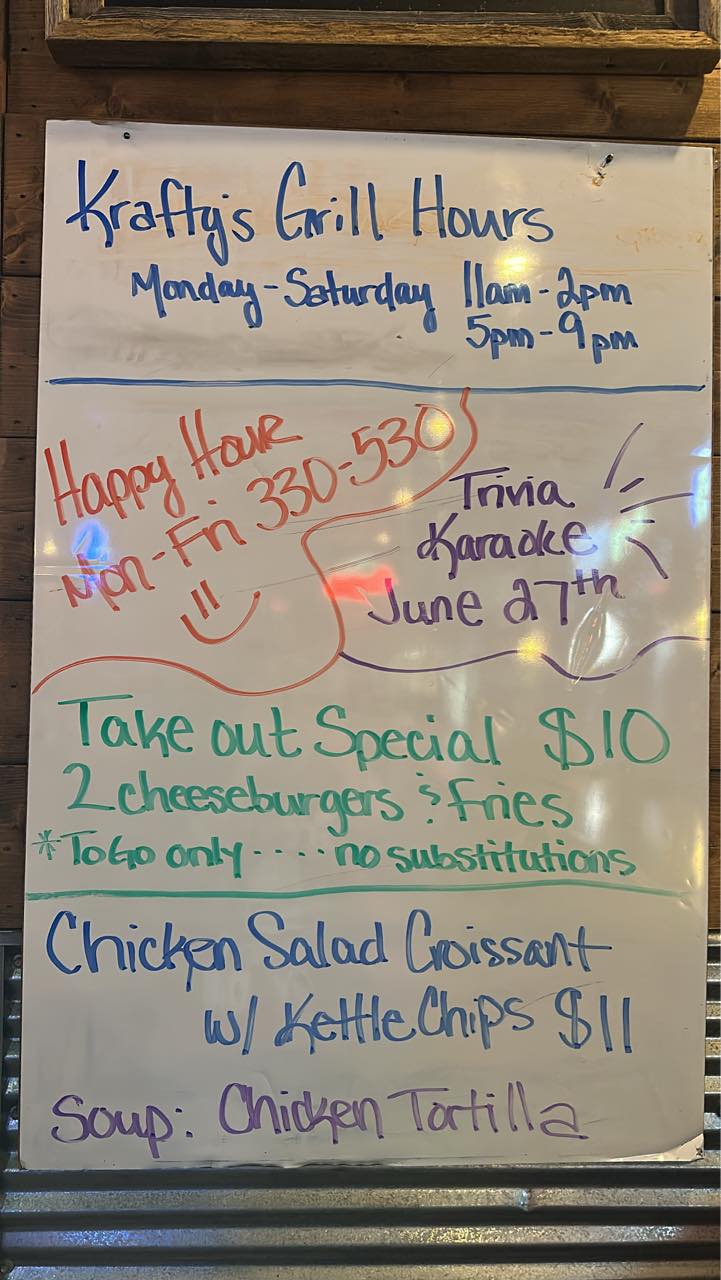 Krafty's Grill Hours
Monday-Saturday 11am-2pm
5pm-9pm
Happy Hour
Mon-Fri 330-530
Trivia
Karaoke
June 27th
Take out Special $10
2 cheeseburgers & fries
*ToGo only .... no substitutions
Chicken Salad Croissant
w/ Kettle Chips $11
Soup: Chicken Tortilla